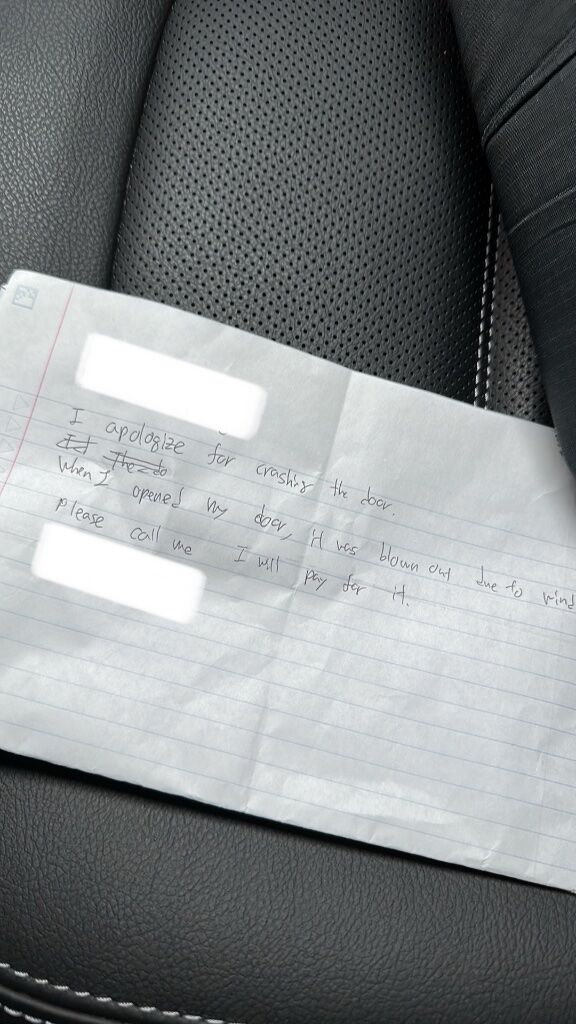 I apologize for crashing the door.
When I opened my door, it was blown out due to wind
please call me I will pay for it.